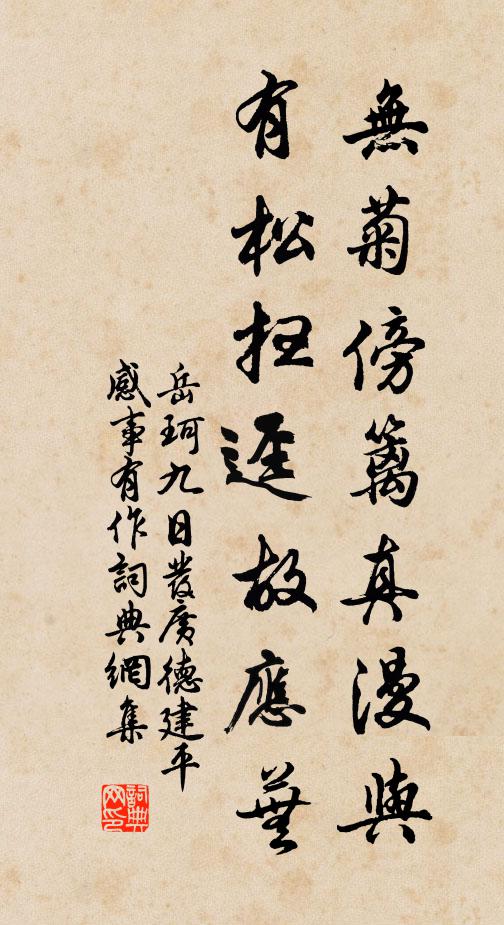 無菊傍篱真漫與
有松扫逕故應蕪
岳珂九日發廣德建平
感事有作詞典網集
詞典网印